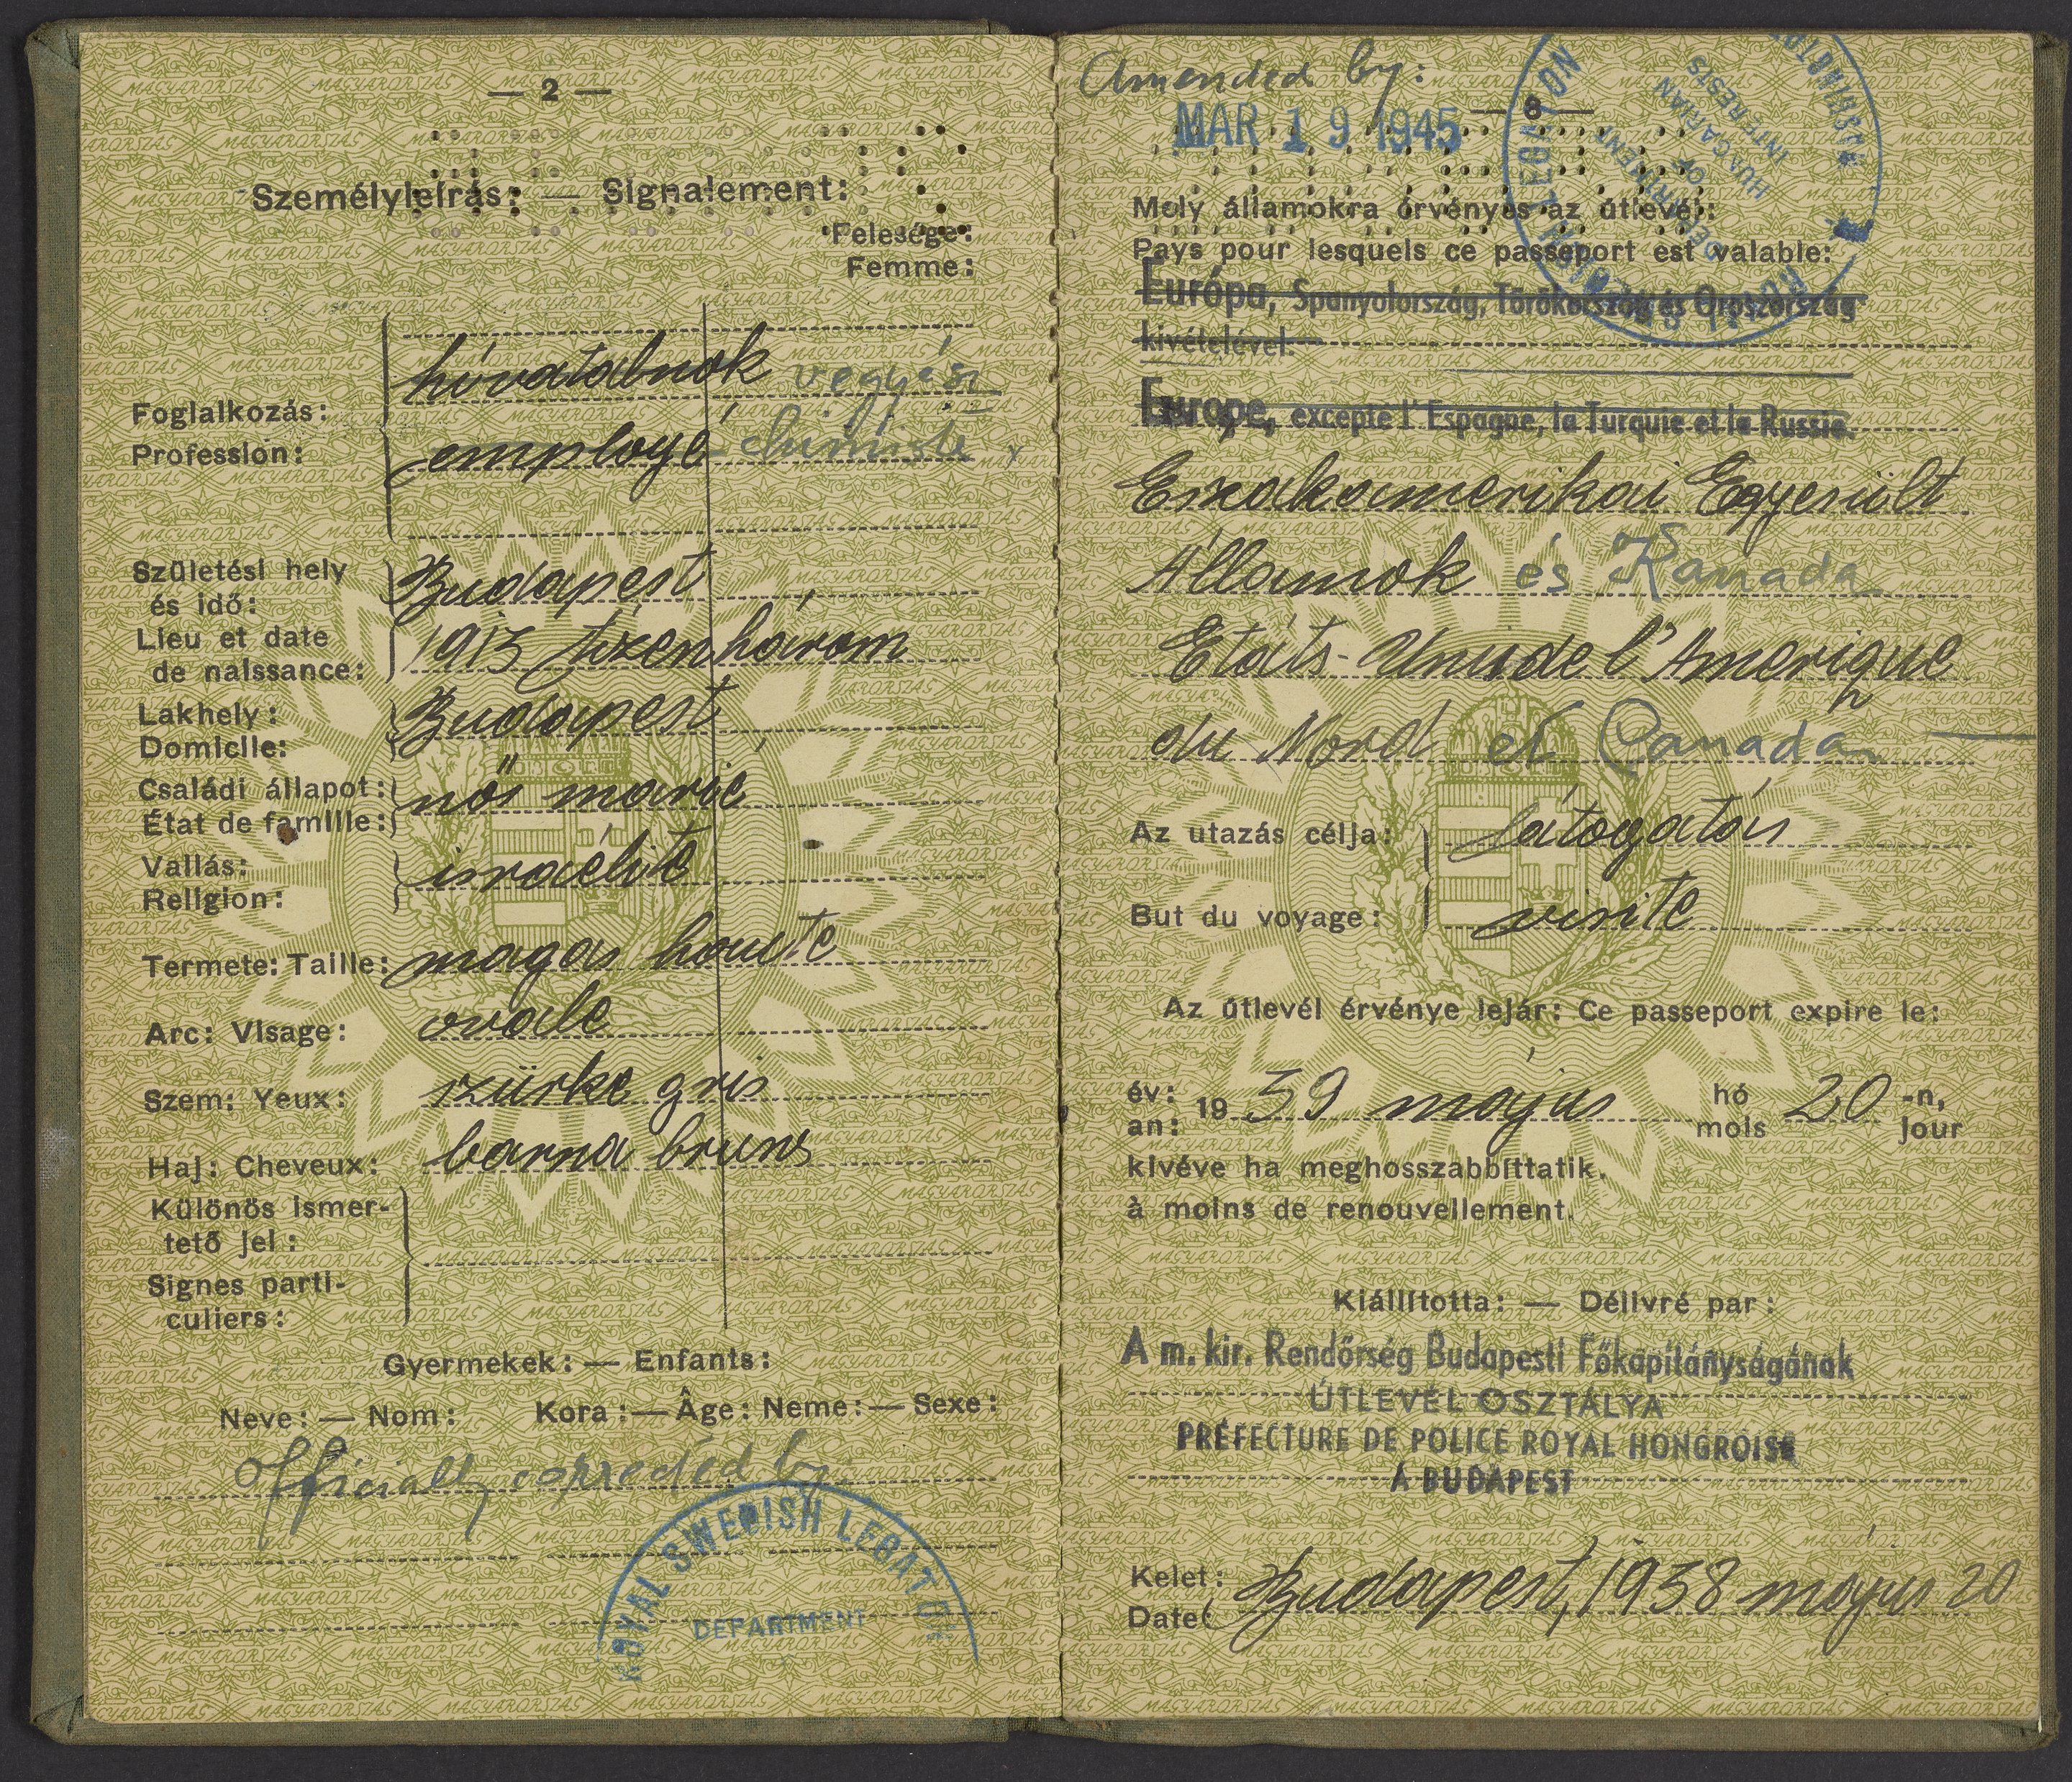 — 2 —
Személyleírás: — Signalement:
Felesége:
Femme:
Foglalkozás:
Profession:
vegyész
employé chimiste
Születési hely
és idő:
Lieu et date
de naissance:
Budapest
1913 tizenhárom
Lakhely:
Domicile:
Budapest
Családi állapot:
État de famille:
nős marié
Vallás:
Religion:
israélite
Termete: Taille: magas haute
Arc: Visage: ovale
Szem: Yeux: szürke gris
Haj: Cheveux: barna bruns
Különös ismer-
tető jel:
Signes parti-
culiers:
Gyermekek: — Enfants:
Neve: — Nom: Kora: — Âge: Neme: — Sexe:
Officially corrected by:
ROYAL SWEDISH LEGATION
DEPARTMENT
Amended by:
MAR 19 1945
— 8 —
ROYAL SWEDISH LEGATION WASHINGTON
DEPARTMENT
OF
HUNGARIAN
INTERESTS
Mely államokra érvényes az útlevél:
Pays pour lesquels ce passeport est valable:
Európa, Spanyolország, Törökország és Oroszország
kivételével.
Europe, excepte l'Espagne, la Turquie et la Russie.
Északamerikai Egyesült
Államok és Kanada
Etáts-Unis de l'Amerique
du Nord et Canada
Az utazás célja: látogatás
But du voyage: visite
Az útlevél érvénye lejár: Ce passeport expire le:
év:
an: 1939 május hó
mois 20 -n,
jour
kivéve ha meghosszabbíttatik.
à moins de renouvellement.
Kiállította: — Délivré par:
A m. kir. Rendőrség Budapesti Főkapitányságának
ÚTLEVÉL OSZTÁLYA
PRÉFECTURE DE POLICE ROYAL HONGROISE
À BUDAPEST
Kelet:
Date: Budapest, 1938 május 20